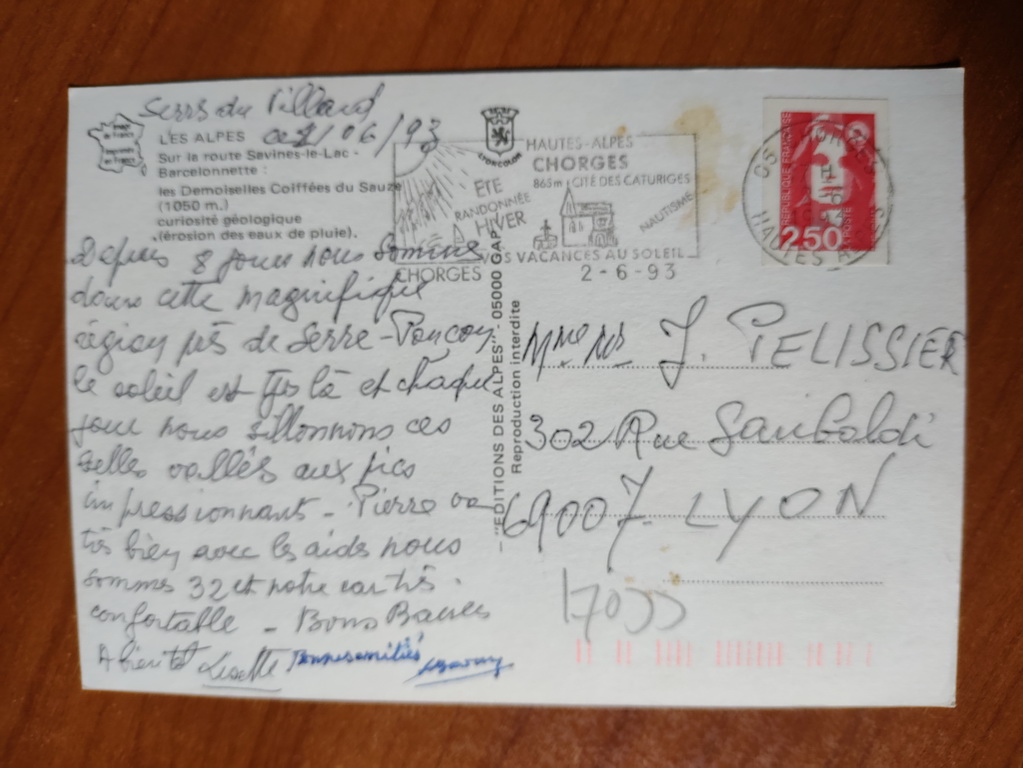 Serre du Villard
ce 1/06/93
LES ALPES
Sur la route Savines-le-Lac -
Barcelonnette :
les Demoiselles Coiffées du Sauze
(1050 m.)
curiosité géologique
(érosion des eaux de pluie).
Depuis 8 jours nous sommes
dans cette magnifique
région près de Serre-Ponçon
le soleil est tjs là et chaque
jour nous sillonnons ces
belles vallés aux pics
impressionnants - Pierre va
très bien avec les aides nous
sommes 32 et notre car très
confortable - Bons Baisers
A bientôt Lisette Bonnes amitiés
LYONCOLOR
"EDITIONS DES ALPES" - 05000 GAP
Reproduction interdite
HAUTES-ALPES
CHORGES
865m CITÉ DES CATURIGES
ETE
RANDONNÉE
HIVER
NAUTISME
VOS VACANCES AU SOLEIL
CHORGES
2-6-93
REPUBLIQUE FRANÇAISE
2,50
LA POSTE
HAUTES ALPES
Mme Mr J. PELISSIER
302 Rue Garibaldi
69007 LYON